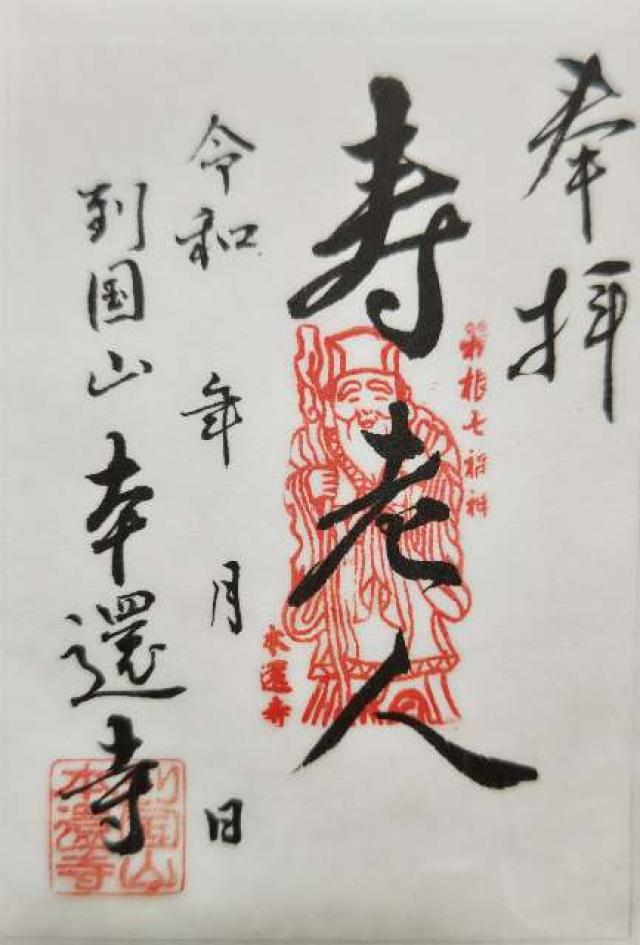 奉拝
箱根七福神
寿老人
本還寺
令和 年 月 日
到国山 本還寺
本還寺